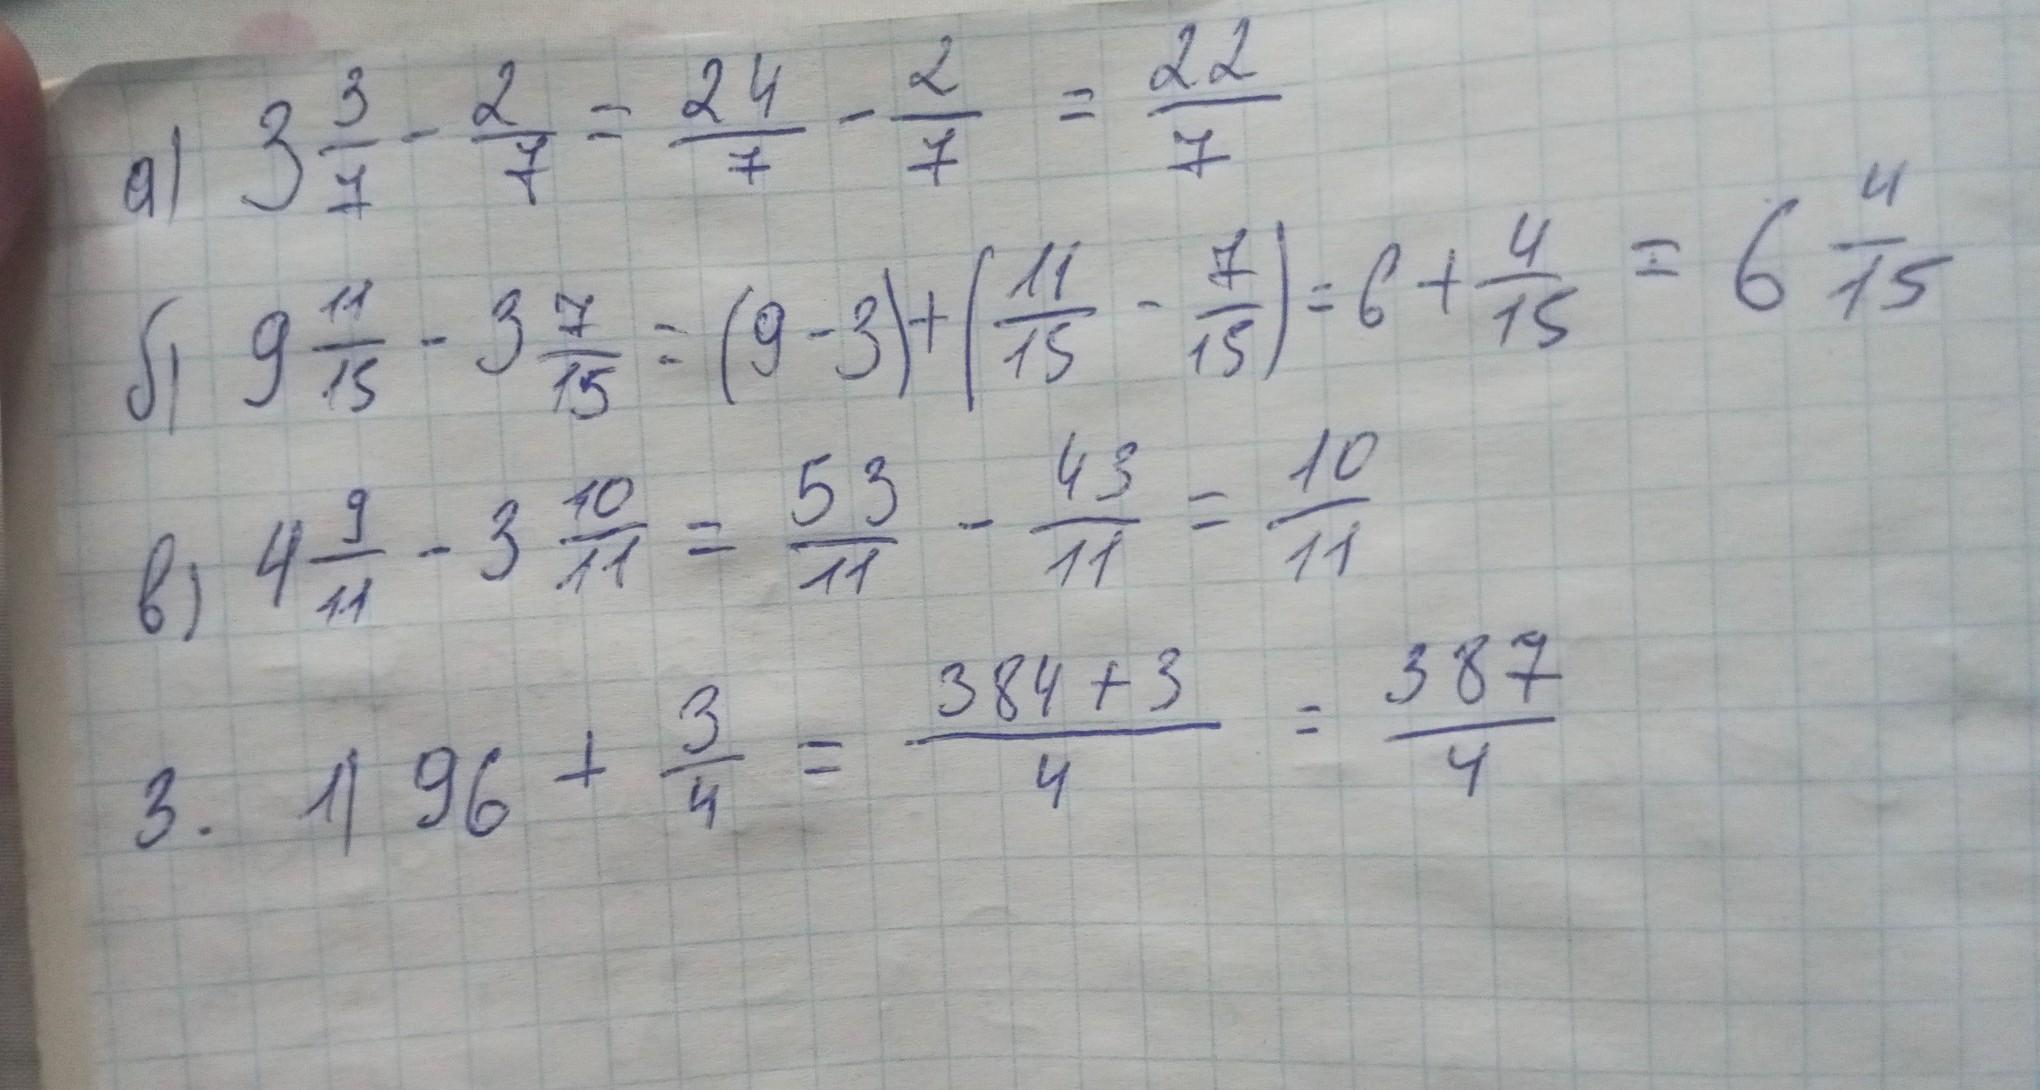 а) 3 3/7 - 2/7 = 24/7 - 2/7 = 22/7
б) 9 11/15 - 3 7/15 = (9 - 3) + (11/15 - 7/15) = 6 + 4/15 = 6 4/15
в) 4 9/11 - 3 10/11 = 53/11 - 43/11 = 10/11
3. 1) 96 + 3/4 = (384 + 3)/4 = 387/4